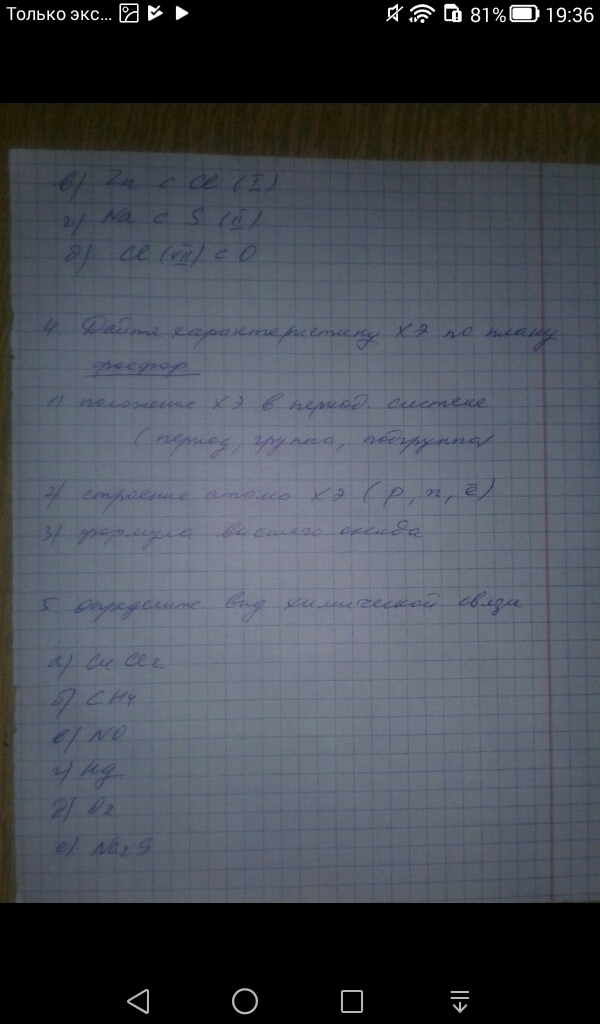 Только экс... 81% 19:36
в) Zn с Cl (I)
г) Na с S (II)
д) Cl (VII) с O
4. Дайте характеристику ХЭ по плану
фосфор
1) положение ХЭ в период. системе
(период, группа, подгруппа)
2) строение атома ХЭ (p, n, ē)
3) формула высшего оксида
5. определите вид химической связи
а) CuCl2
б) CH4
в) NO
г) Hg
д) O2
е) Na2S